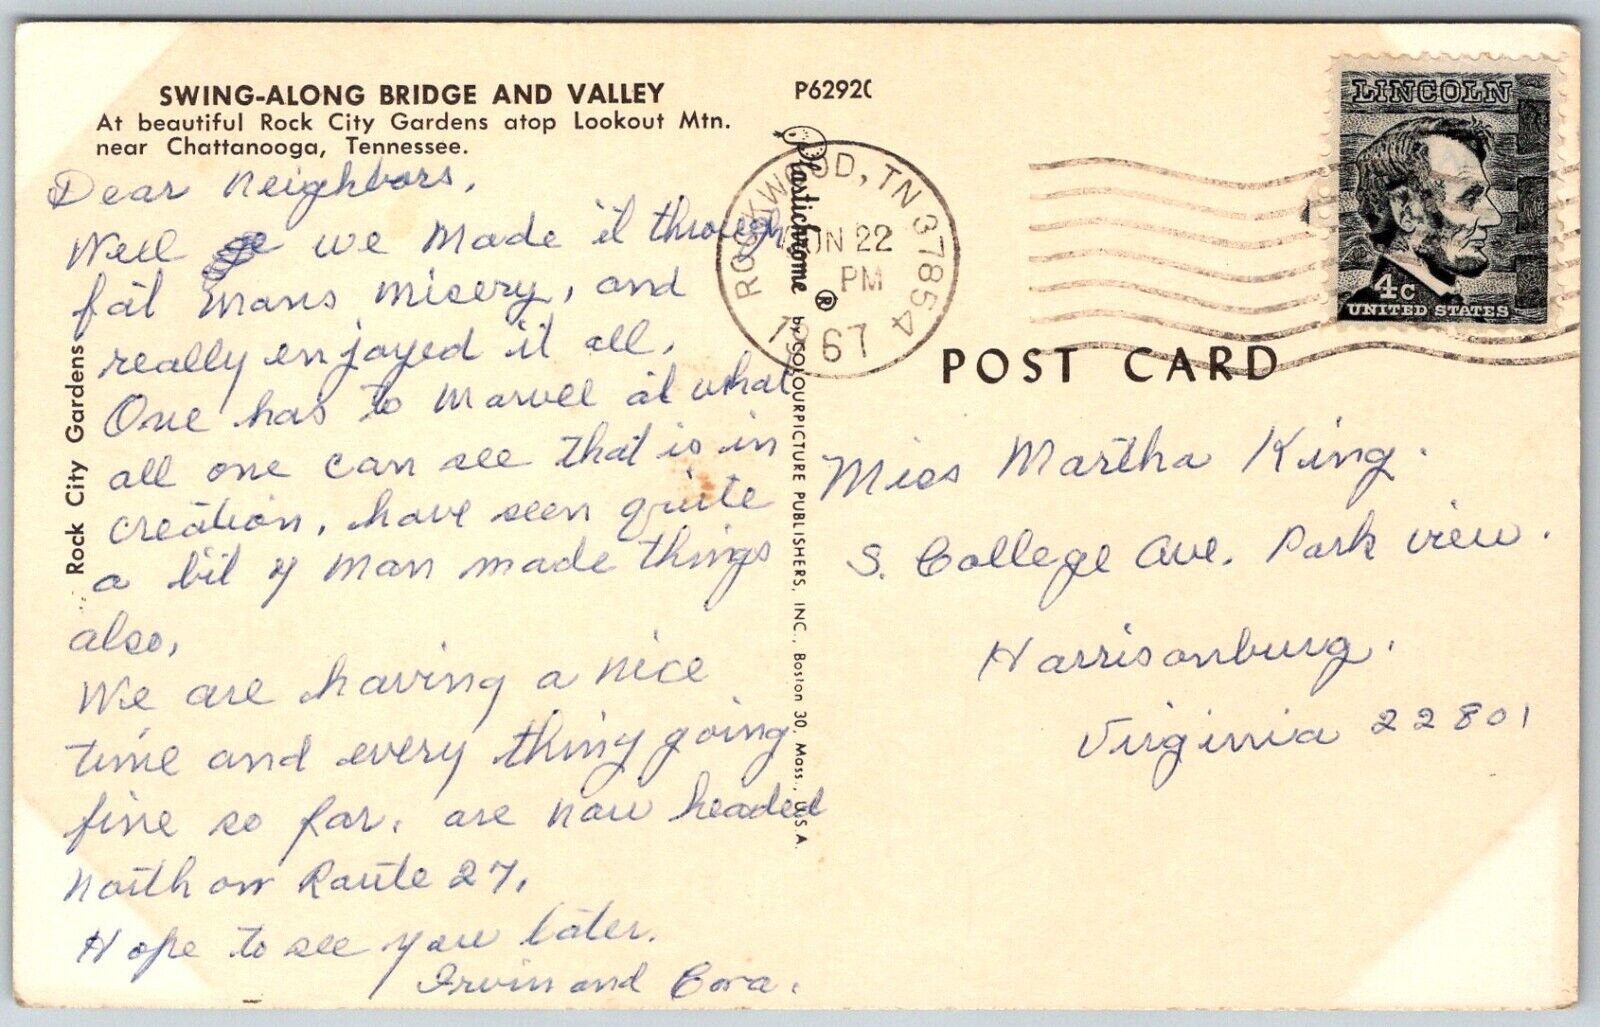 SWING-ALONG BRIDGE AND VALLEY
At beautiful Rock City Gardens atop Lookout Mtn.
near Chattanooga, Tennessee.
Dear Neighbors,
Well we Made it through
fat Mans misery, and
really enjoyed it all.
One has to Marvel at what
all one can see that is in
creation, have seen quite
a bit of Man made things
also,
We are having a nice
time and every thing going
fine so far. are now headed
North on Route 27.
Hope to see you later.
Irvin and Cora.
Rock City Gardens
P6292C
Plastichrome ® by COLOURPICTURE PUBLISHERS, INC., Boston 30, Mass., U.S.A.
ROCKWOOD, TN 37854
JUN 22
PM
1967
LINCOLN
4c
UNITED STATES
POST CARD
Miss Martha King.
S. College Ave. Park view.
Harrisonburg.
Virginia 22801